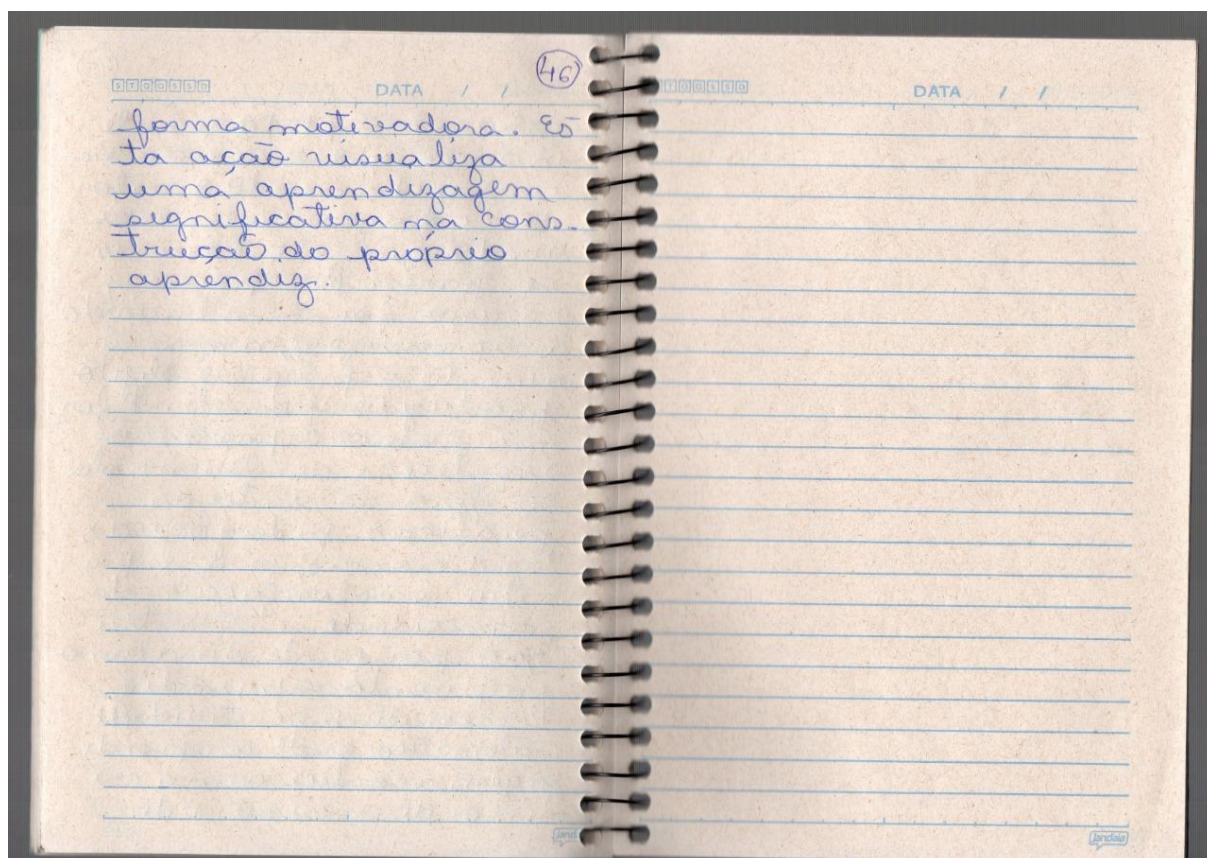 46
S T Q Q S S D
DATA / /
forma motivadora. Es
ta ação visualiza
uma aprendizagem
significativa na cons-
trução do próprio
aprendiz.
jand
T Q Q S S D
DATA / /
jandaia